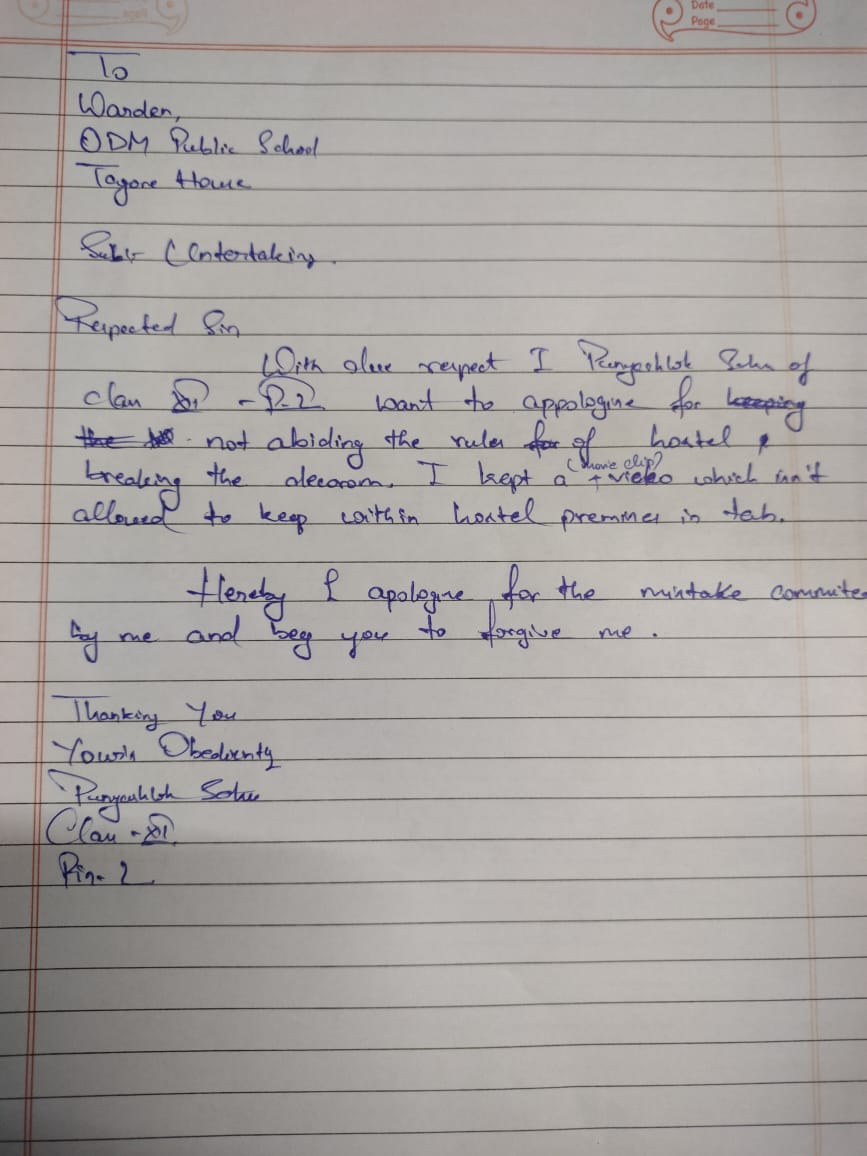 Date
Page
To
Warden,
ODM Public School
Tagore House
Sub:- Untertaking.
Respected Sir
With due respect I Punyashlok Sahu of
class XI - P-2 want to appologise for keeping
the not abiding the rules for of hostel,
breaking the decorom. I kept a (movie clip) video which isn't
allowed to keep within hostel premises in tab.
Hereby I apologise for the mistake commite
by me and beg you to forgive me.
Thanking You
Your's Obedienty
Punyashlok Sahu
Class - XI
Pin- 2